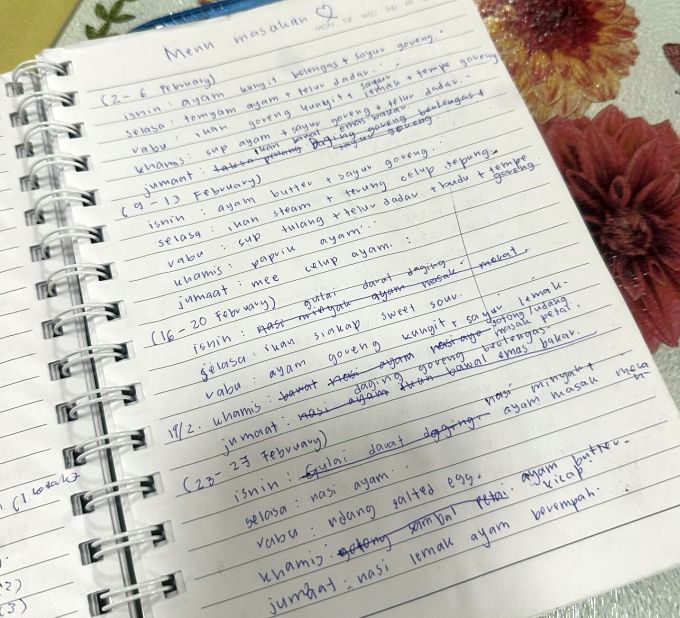 Menu masakan ♡
(2 - 6 February)
isnin : ayam kunyit berlengas + sayur goreng.
selasa : tomyam ayam + telur dadar.
rabu : ikan goreng kunyit + sayur lemak + tempe goreng
khamis : sup ayam + sayur goreng + telur dadar.
ikan bawal emas bakar.
jumaat : daging goreng berlengas + sayur goreng
(9 - 13 February)
isnin : ayam butter + sayur goreng.
selasa : ikan steam + terung celup tepung.
rabu : sup tulang + telur dadar + kundu + tempe goreng
khamis : paprik ayam.
jumaat : mee celup ayam.
(16 - 20 February) gulai darat daging
isnin : nasi minyak ayam masak merah.
selasa : ikan siakap sweet sour.
rabu : ayam goreng kunyit + sayur lemak.
19/2. khamis : bawal nasi ayam sotong/udang masak petai.
daging goreng berlengas.
jumaat : nasi ayam ikan bawal emas bakar.
(23 - 27 February)
nasi minyak +
isnin : Gulai darat daging ayam masak merah
selasa : nasi ayam.
rabu : udang salted egg.
khamis : sotong sambal petai ayam butter.
kicap.
jumaat : nasi lemak ayam berempah.
(1 kotak)
2)
(3)